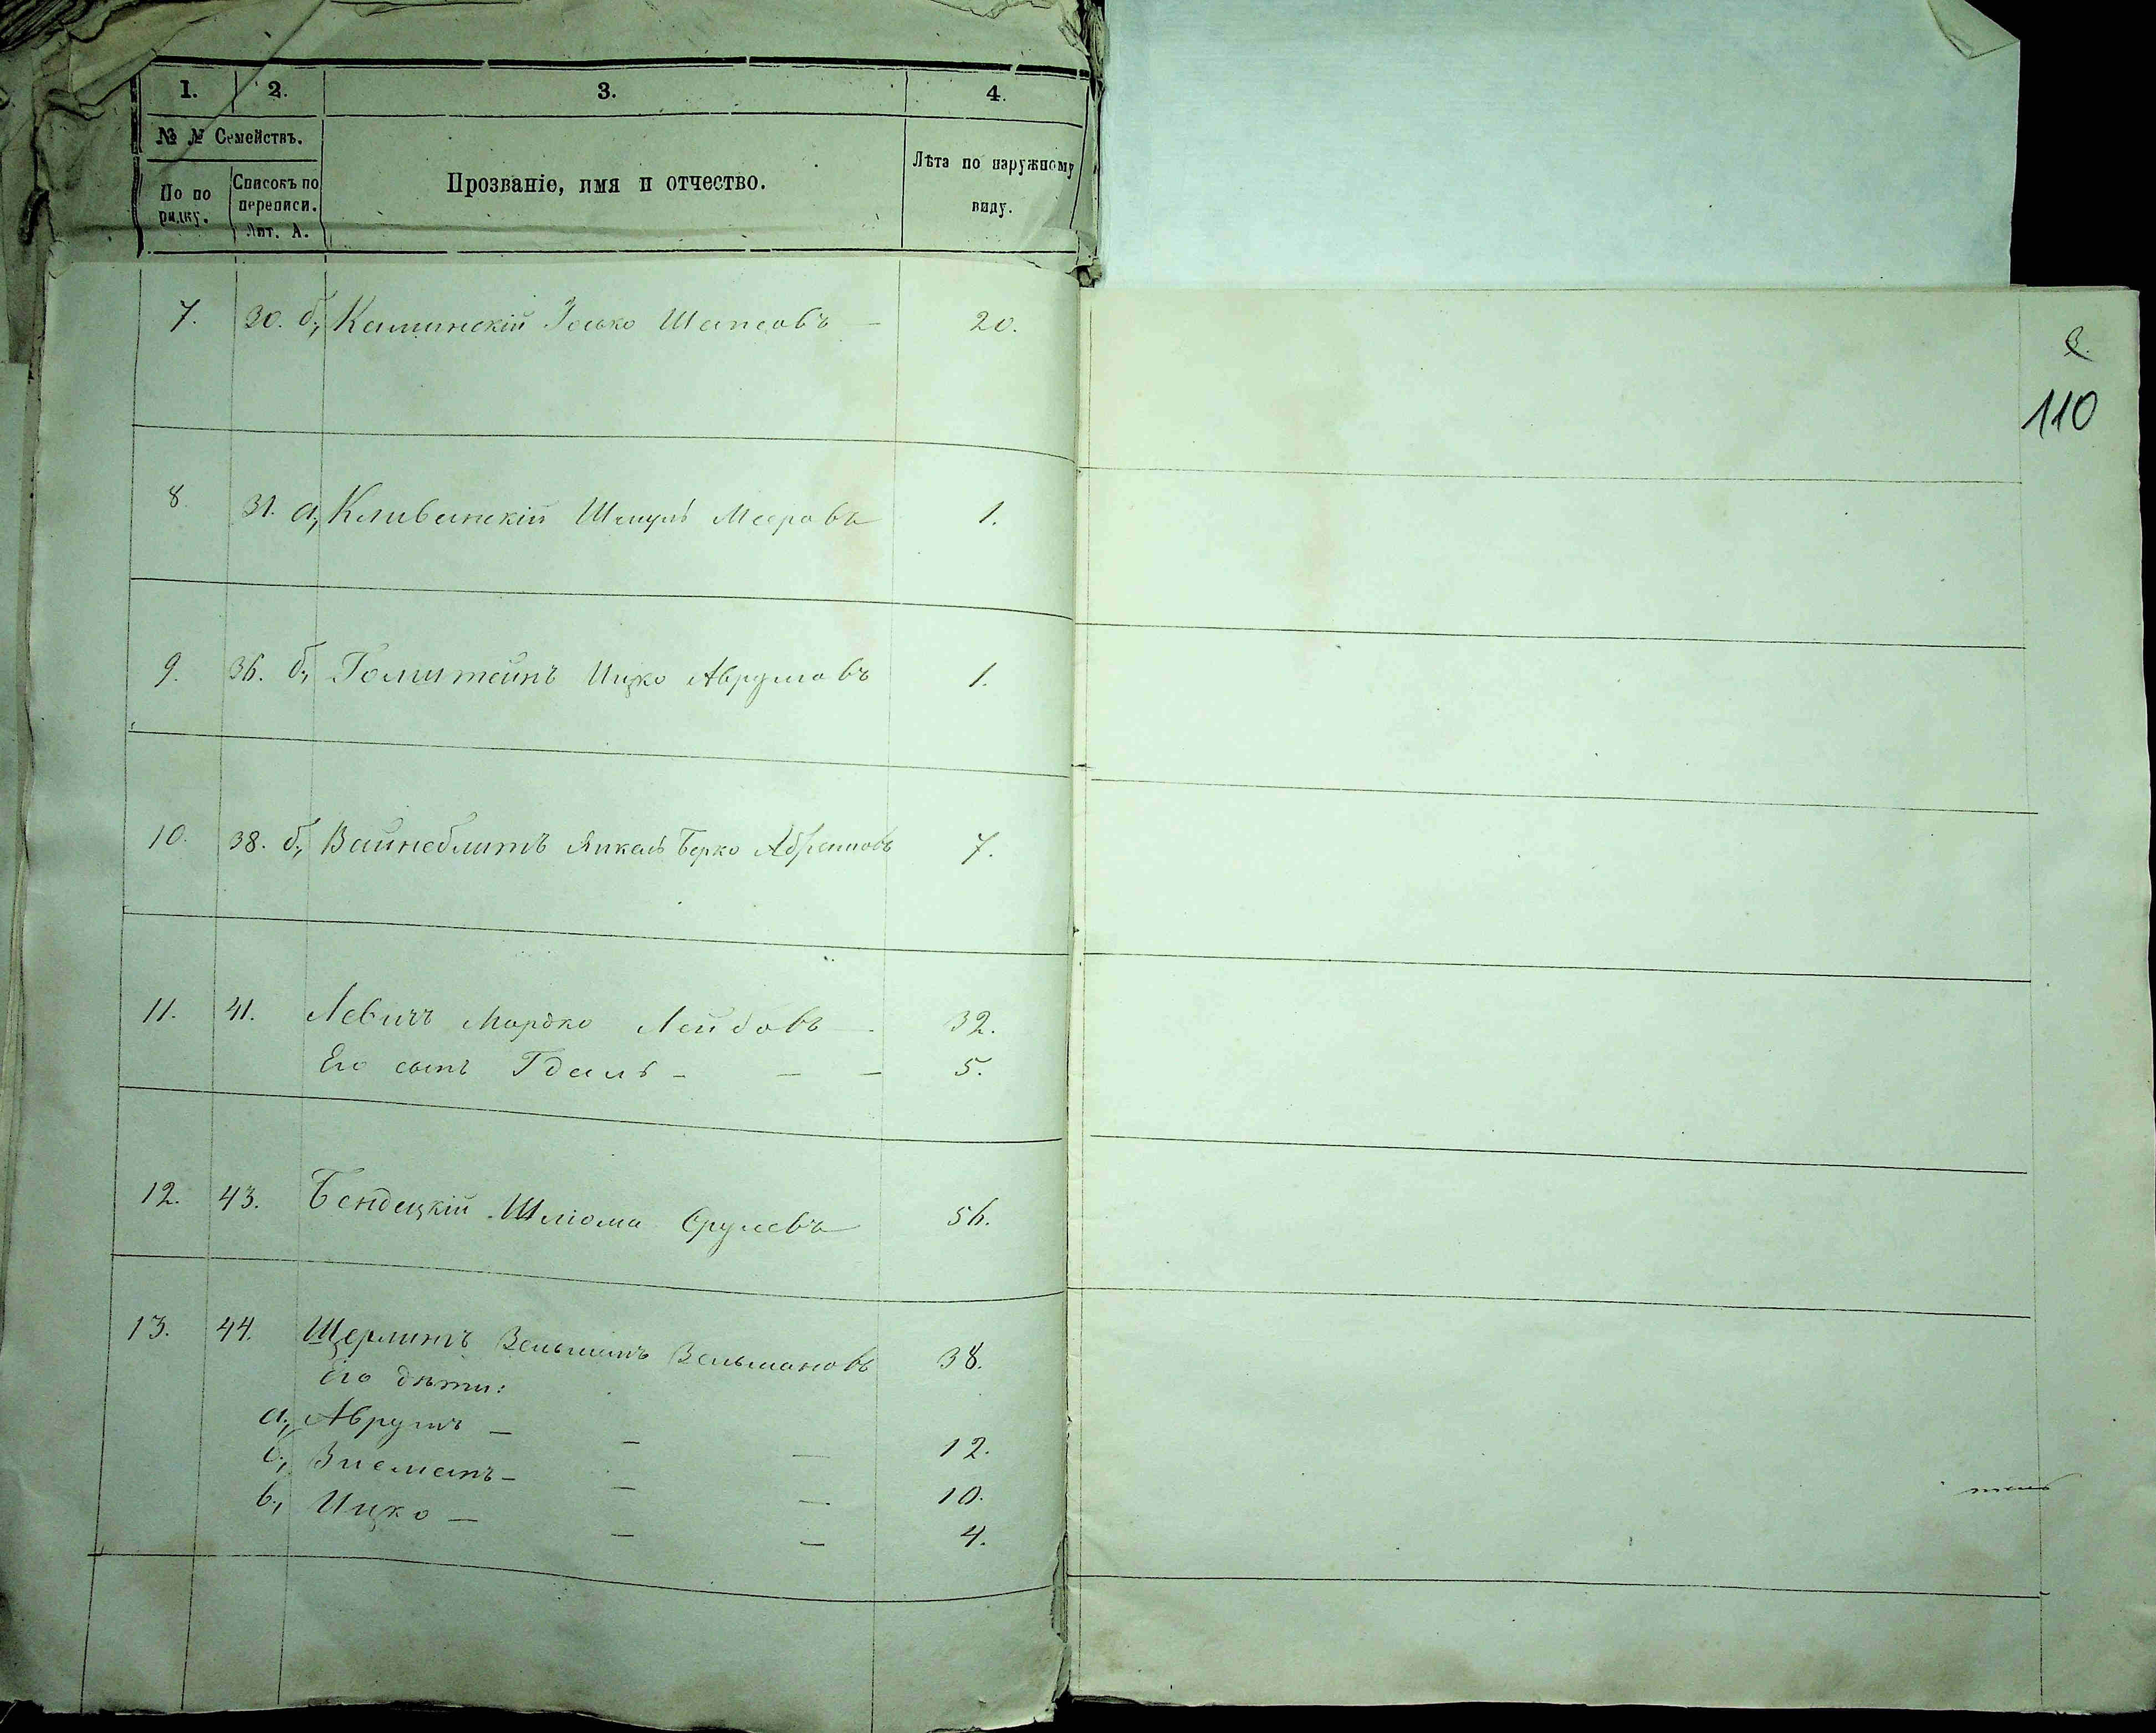 1. 2. 3. 4.
№ № Семействъ.
По по рядку.
Списокъ по переписи. Лит. А.
Прозваніе, имя и отчество.
Лѣта по наружному виду.
7. 30. б., Каминскій Іосько Шапсовъ — 20.
8. 31. а., Кливанскій Шмулъ Мееровъ 1.
9. 36. б., Голштейнъ Ицко Аврумовъ 1.
10. 38. б., Вайнеблитъ Янкель Берко Абрамовъ 7.
11. 41. Левичъ Мордко Лейбовъ — 32.
Его сынъ Гдаль — — — 5.
12. 43. Бендецкій Шліома Срулевъ 56.
13. 44. Щерлинъ Вельманъ Вельмановъ 38.
Его дѣти:
а., Аврумъ — — — 12.
б., — — — 10.
в., Ицко — — — 4.
110